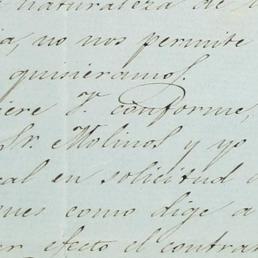 naturaleza de
, no nos permite
quisieramos.
ere V. conforme,
Sr. Molinos y yo
eal en solicitud
ues como dige a
efecto el contra